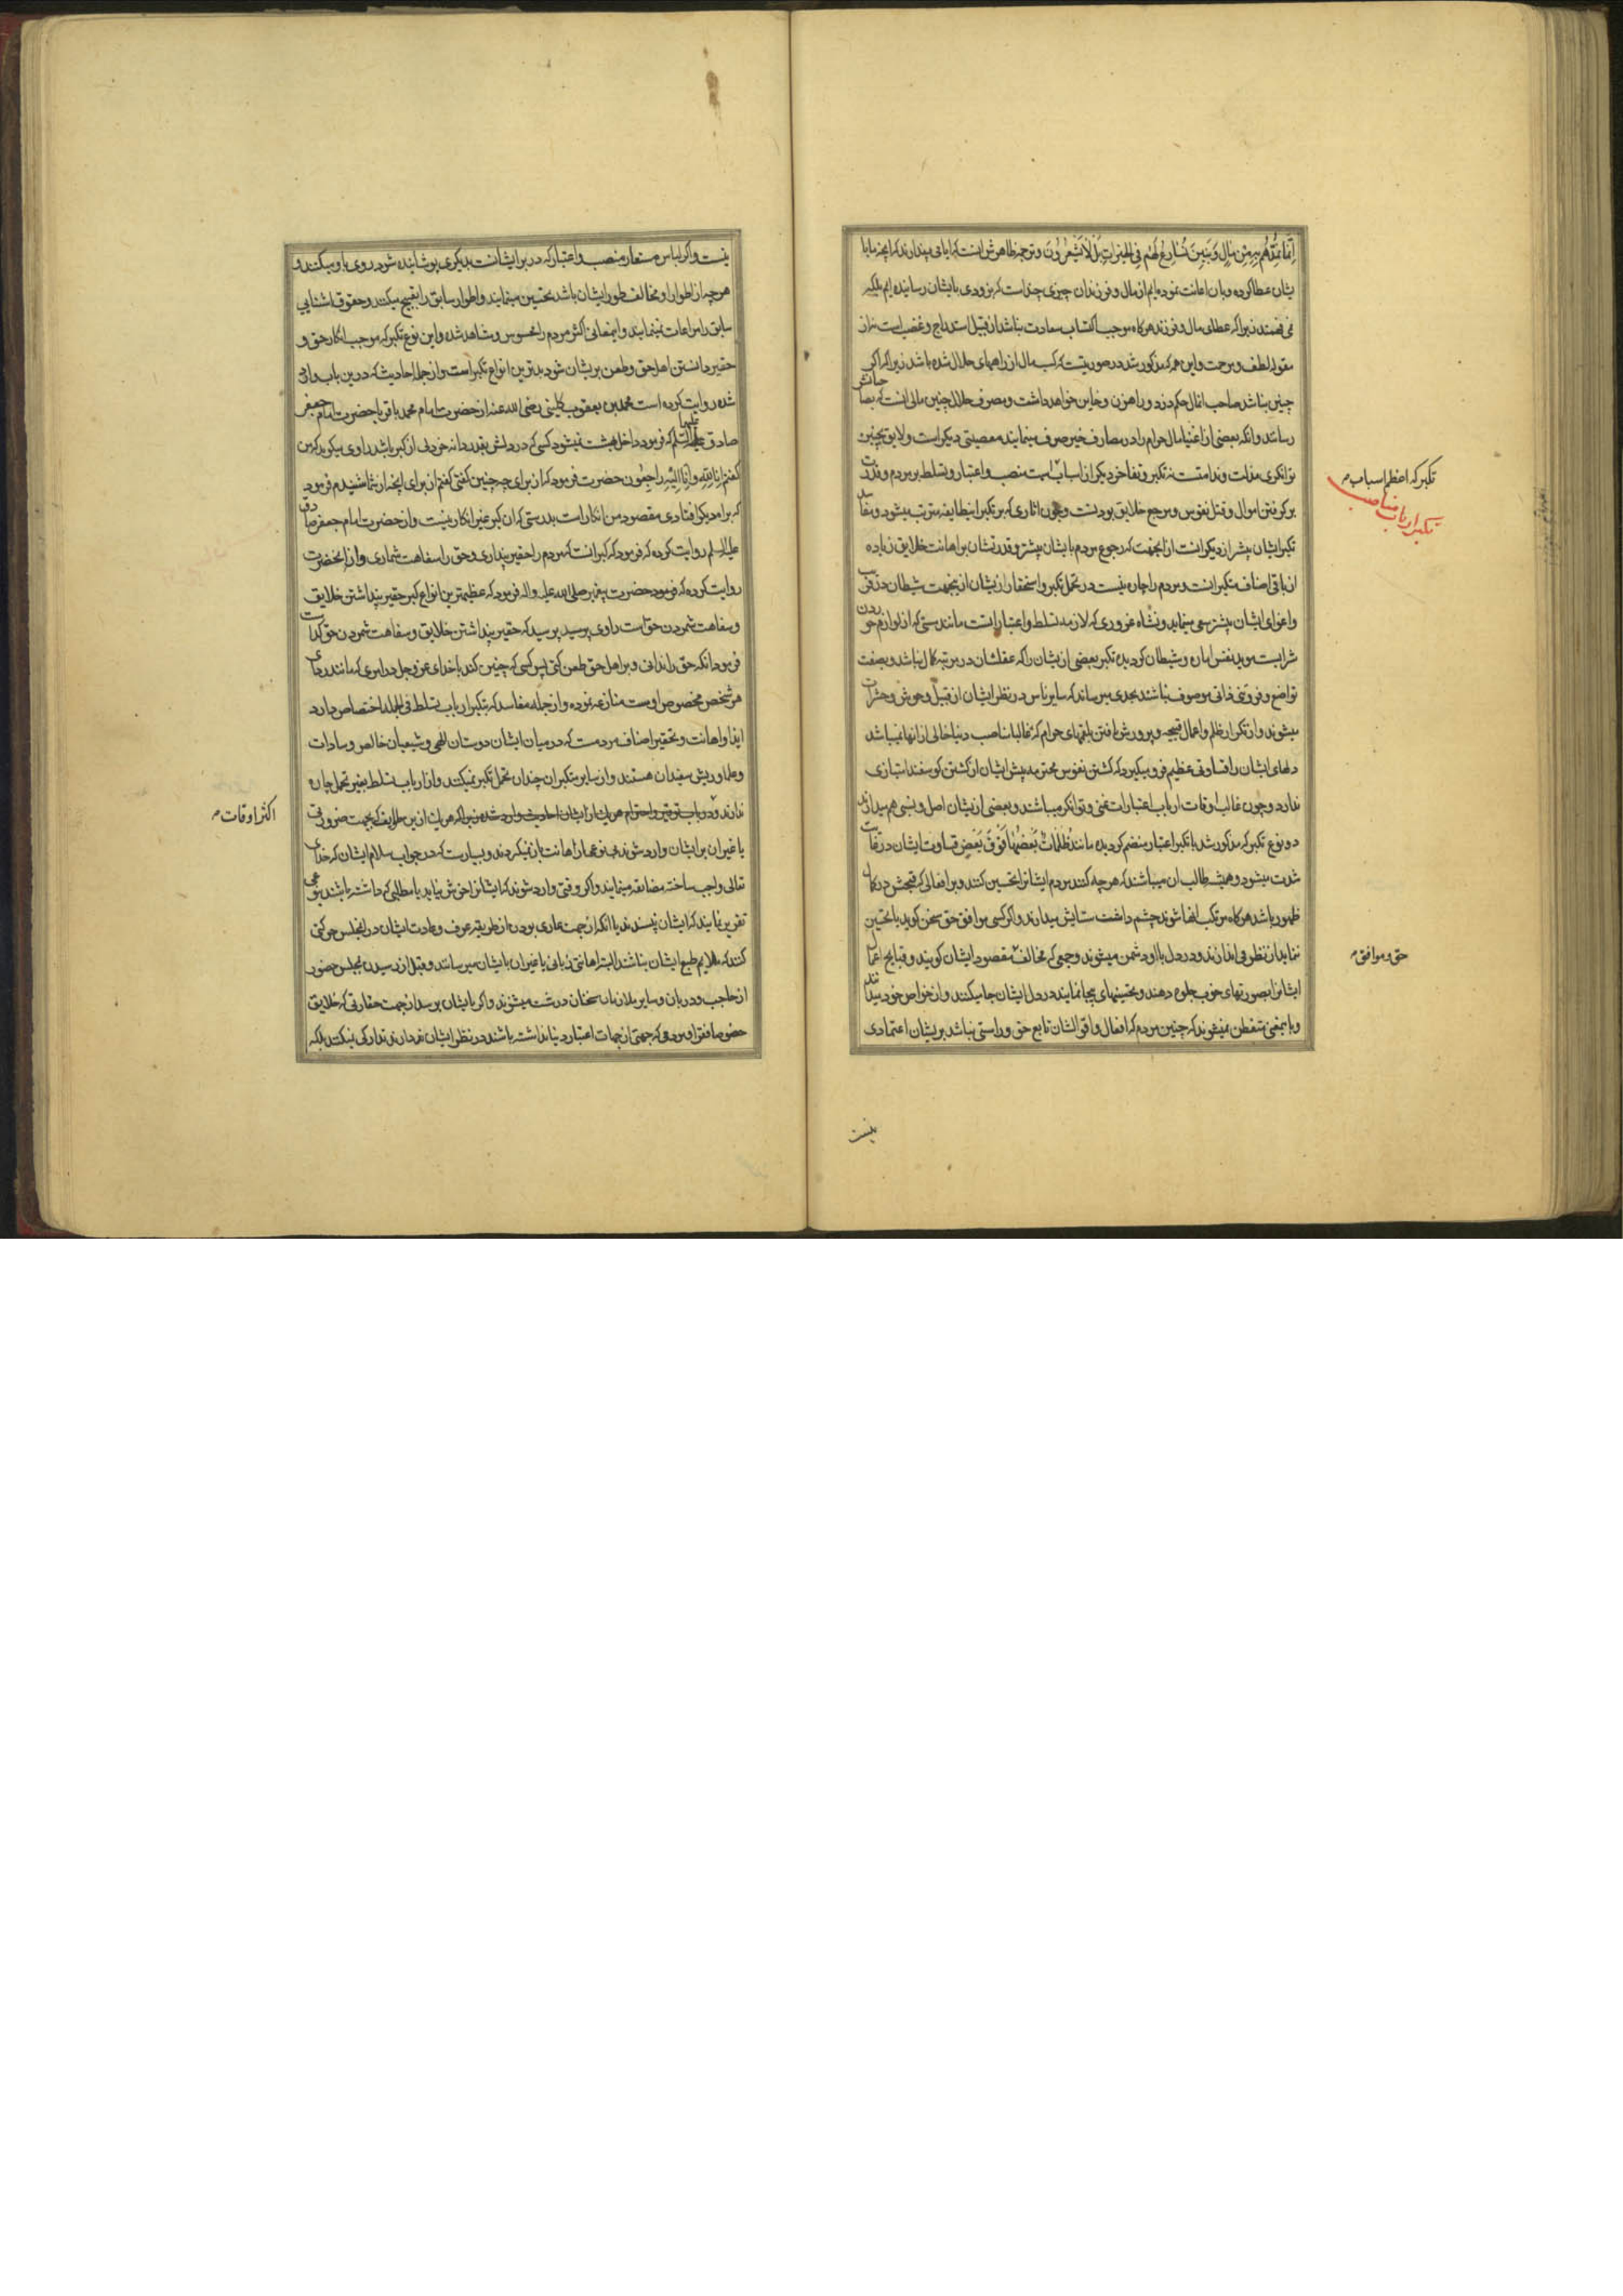 اِنَّمَا نُمِدُّهُمْ بِهِ مِنْ مَالٍ وَبَنِينَ نُسَارِعُ لَهُمْ فِي الْخَيْرَاتِ بَلْ لَا يَشْعُرُونَ وترجمه ظاهرش انست که ایا می پندارند که انچه ما با
یشان عطا کرده وبان اعانت نموده ایم از مال و فرزندان چیزی چند است که بزودی بایشان رسانیده ایم بلکه
نمی فهمند زیرا که عطای مال و فرزند هرکاه موجب اکتساب سعادت نباشد از قبیل استدراج و غضب است نه از
مقوله لطف و مرحمت و این همه که مذکور شد در صورتیست که کسب مال از راههای حلال شده باشد زیرا که اکر
چنین نباشد صاحب انمال حکم دزد و راهزن و خاین خواهد داشت ومصرف حلال چنین مالی انست که بصاحبانش
رسانند وانکه بعضی از اغنیا مال حرام را در مصارف خیر صرف مینمایند معصیتی دیکر است و لایق چنین
توانکری مذلت و ندامتست نه تکبر و تفاخر دیکر از اسباب منصب و اعتبار و تسلط بر مردم و قدرت
بر کرفتن اموال و قتل نفوس و مرجع خلایق بودنست و چون اثاری که بر تکبر اینطایفه مترتب میشود
تکبر ایشان بیشتر از دیکرانست از انجهت که رجوع مردم بایشان بیشتر و قدرتشان بر اهانت خلایق زیاده
از باقی اصناف متکبرانست و مردم را چاره نیست در تحمل تکبر و استحقار ازیشان ازینجهت شیطان در فریب
واغوای ایشان بیشتر سعی مینماید و نشاه غروری که لازمه تسلط و اعتبار است مانند مستی که از لوازم خوردن
شرابست موید نفس اماره و شیطان کردیده تکبر بعضی ازیشان را که عقلشان در مرتبه کمال نباشد و بصفت
تواضع و فروتنی ذاتی موصوف نباشند بحدی میرساند که سایر ناس در نظر ایشان از قبیل وحوش و حشرات
میشوند و از تکرار ظلم و اعمال قبیحه و پرورش یافتن بلقمهای حرام که غالبا مناصب دنیا خالی از انها نمیباشد
دلهای ایشان را قساوتی عظیم فرو میکیرد که کشتن نفوس محترمه پیش ایشان از کشتن کوسفند امتیازی
ندارد و چون غالب اوقات ارباب اعتبارات غنی و توانکر میباشند و بعضی ازیشان اصل و نسبی هم میدارند
دو نوع تکبر که مذکور شد با تکبر اعتبار منضم کردیده مانند ظُلُمَاتٌ بَعْضُهَا فَوْقَ بَعْضٍ قساوت ایشان در غایت
شدت میشود و همیشه طالب ان میباشند که هر چه کنند مردم ایشانرا تحسین کنند و بر افعالی که قبحش در کمال
ظهور باشد هرکاه مرتکب انها شوند چشم داشت ستایش میدارند و اکر کسی موافق حق سخن کوید یا تحسین
ننماید از نظر می اندازند و در دل با او دشمن میشوند و جمعی که مخالف مقصود ایشان کویند و قبایح اعمال
ایشانرا بصورتهای خوب جلوه دهند و تحسینهای بیجا نمایند در دل ایشان جا میکنند و از خواص خود میدانند
وباینمعنی متفطن نمیشوند که چنین مردم که افعال و اقوالشان تابع حق و راستی نباشد بریشان اعتمادی
تکبر که اعظم اسباب
تکبر ارباب مناصب
حق و موافق
نیست
نیست واکر لباس مستعار منصب و اعتبار که در بر ایشانست بدیکری پوشانیده شود روی باو میکنند و
هر چه از اطوار او مخالف طور ایشان باشد تحسین مینمایند و اطوار سابق را تقبیح میکنند و حقوق اشنایی
سابق را مراعات نمینمایند و اینمعانی اکثر مردم را محسوس و مشاهد شده و این نوع تکبر که موجب انکار حق و
حقیر دانستن اهل حق و طعن بریشان شود بدترین انواع تکبر است و از جمله احادیث که درین باب وارد
شده روایت کرده است محمد بن یعقوب کلینی رضی الله عنه از حضرت امام محمد باقر یا حضرت امام جعفر
صادق علیهما السلام که فرمود داخل بهشت نمیشود کسی که در دلش بقدر دانه خردلی از کبر باشد راوی میکوید که من
کفتم انا لله وانا الیه راجعون حضرت فرمود که از برای چه چنین کفتی کفتم از برای انچه از شما شنیدم فرمود
که براه دیکر افتادی مقصود من انکار است بدرستی که ان کبر غیر انکار نیست و از حضرت امام جعفر صادق
علیه السلم روایت کرده که فرمود که کبر انست که مردم را حقیر پنداری و حق را سفاهت شماری و از انحضرت
روایت کرده که فرمود حضرت پیغمبر صلی الله علیه واله فرمود که عظیمترین انواع کبر حقیر پنداشتن خلایق
و سفاهت شمردن حق است راوی پرسید پرسید که حقیر پنداشتن خلایق و سفاهت شمردن حق کدامست
فرمود انکه حق را ندانی و بر اهل حق طعن کنی پس کسی که چنین کند با خدای عز و جل در امری که مانند ردای
هر شخص مخصوص اوست منازعه نموده و از جمله مفاسد که بتکبر ارباب تسلط فی الجمله اختصاص دارد
ایذا و اهانت و تحقیر اصناف مردمست که در میان ایشان دوستان الهی و شیعیان خالص و سادات
و علما و ریش سفیدان هستند و از سایر متکبران چندان تحمل تکبر نمیکنند و از ارباب تسلط بغیر تحمل چاره
ندارند و در باب توقیر و احترام هر یک از ایشان احادیث وارد شده زیرا که هر یک ازین خلایق که بجهت ضرورتی
یا غیر ان بر ایشان وارد شوند بی نوعها از اهانت باز نمیکردند و بسیارست که در جواب سلام ایشان که خدای
تعالی واجب ساخته مضایقه مینمایند و اکر وقتی وارد شوند که ایشانرا خوش نیاید یا مطلبی که داشته باشند بنوعی
تقریر نمایند که ایشان نپسندند یا انکه از جهت عاری بودن از طریقه عرف و عادت ایشان در انمجلس حرکتی
کنند که ملایم طبع ایشان نباشد البته اهانتی زبانی یا غیر ان بایشان میرسانند و قبل از رسیدن بمجلس حضور
از حاجب و دربان و سایر ملازمان سخنان درشت میشنوند و اکر بایشان برسد از جهت حقارتی که خلایق
خصوصا فقرا و مردمی که جهتی از جهات اعتبار دنیا نداشته باشند در نظر ایشان دارند تدارکی نمیکنند بلکه
اکثر اوقات